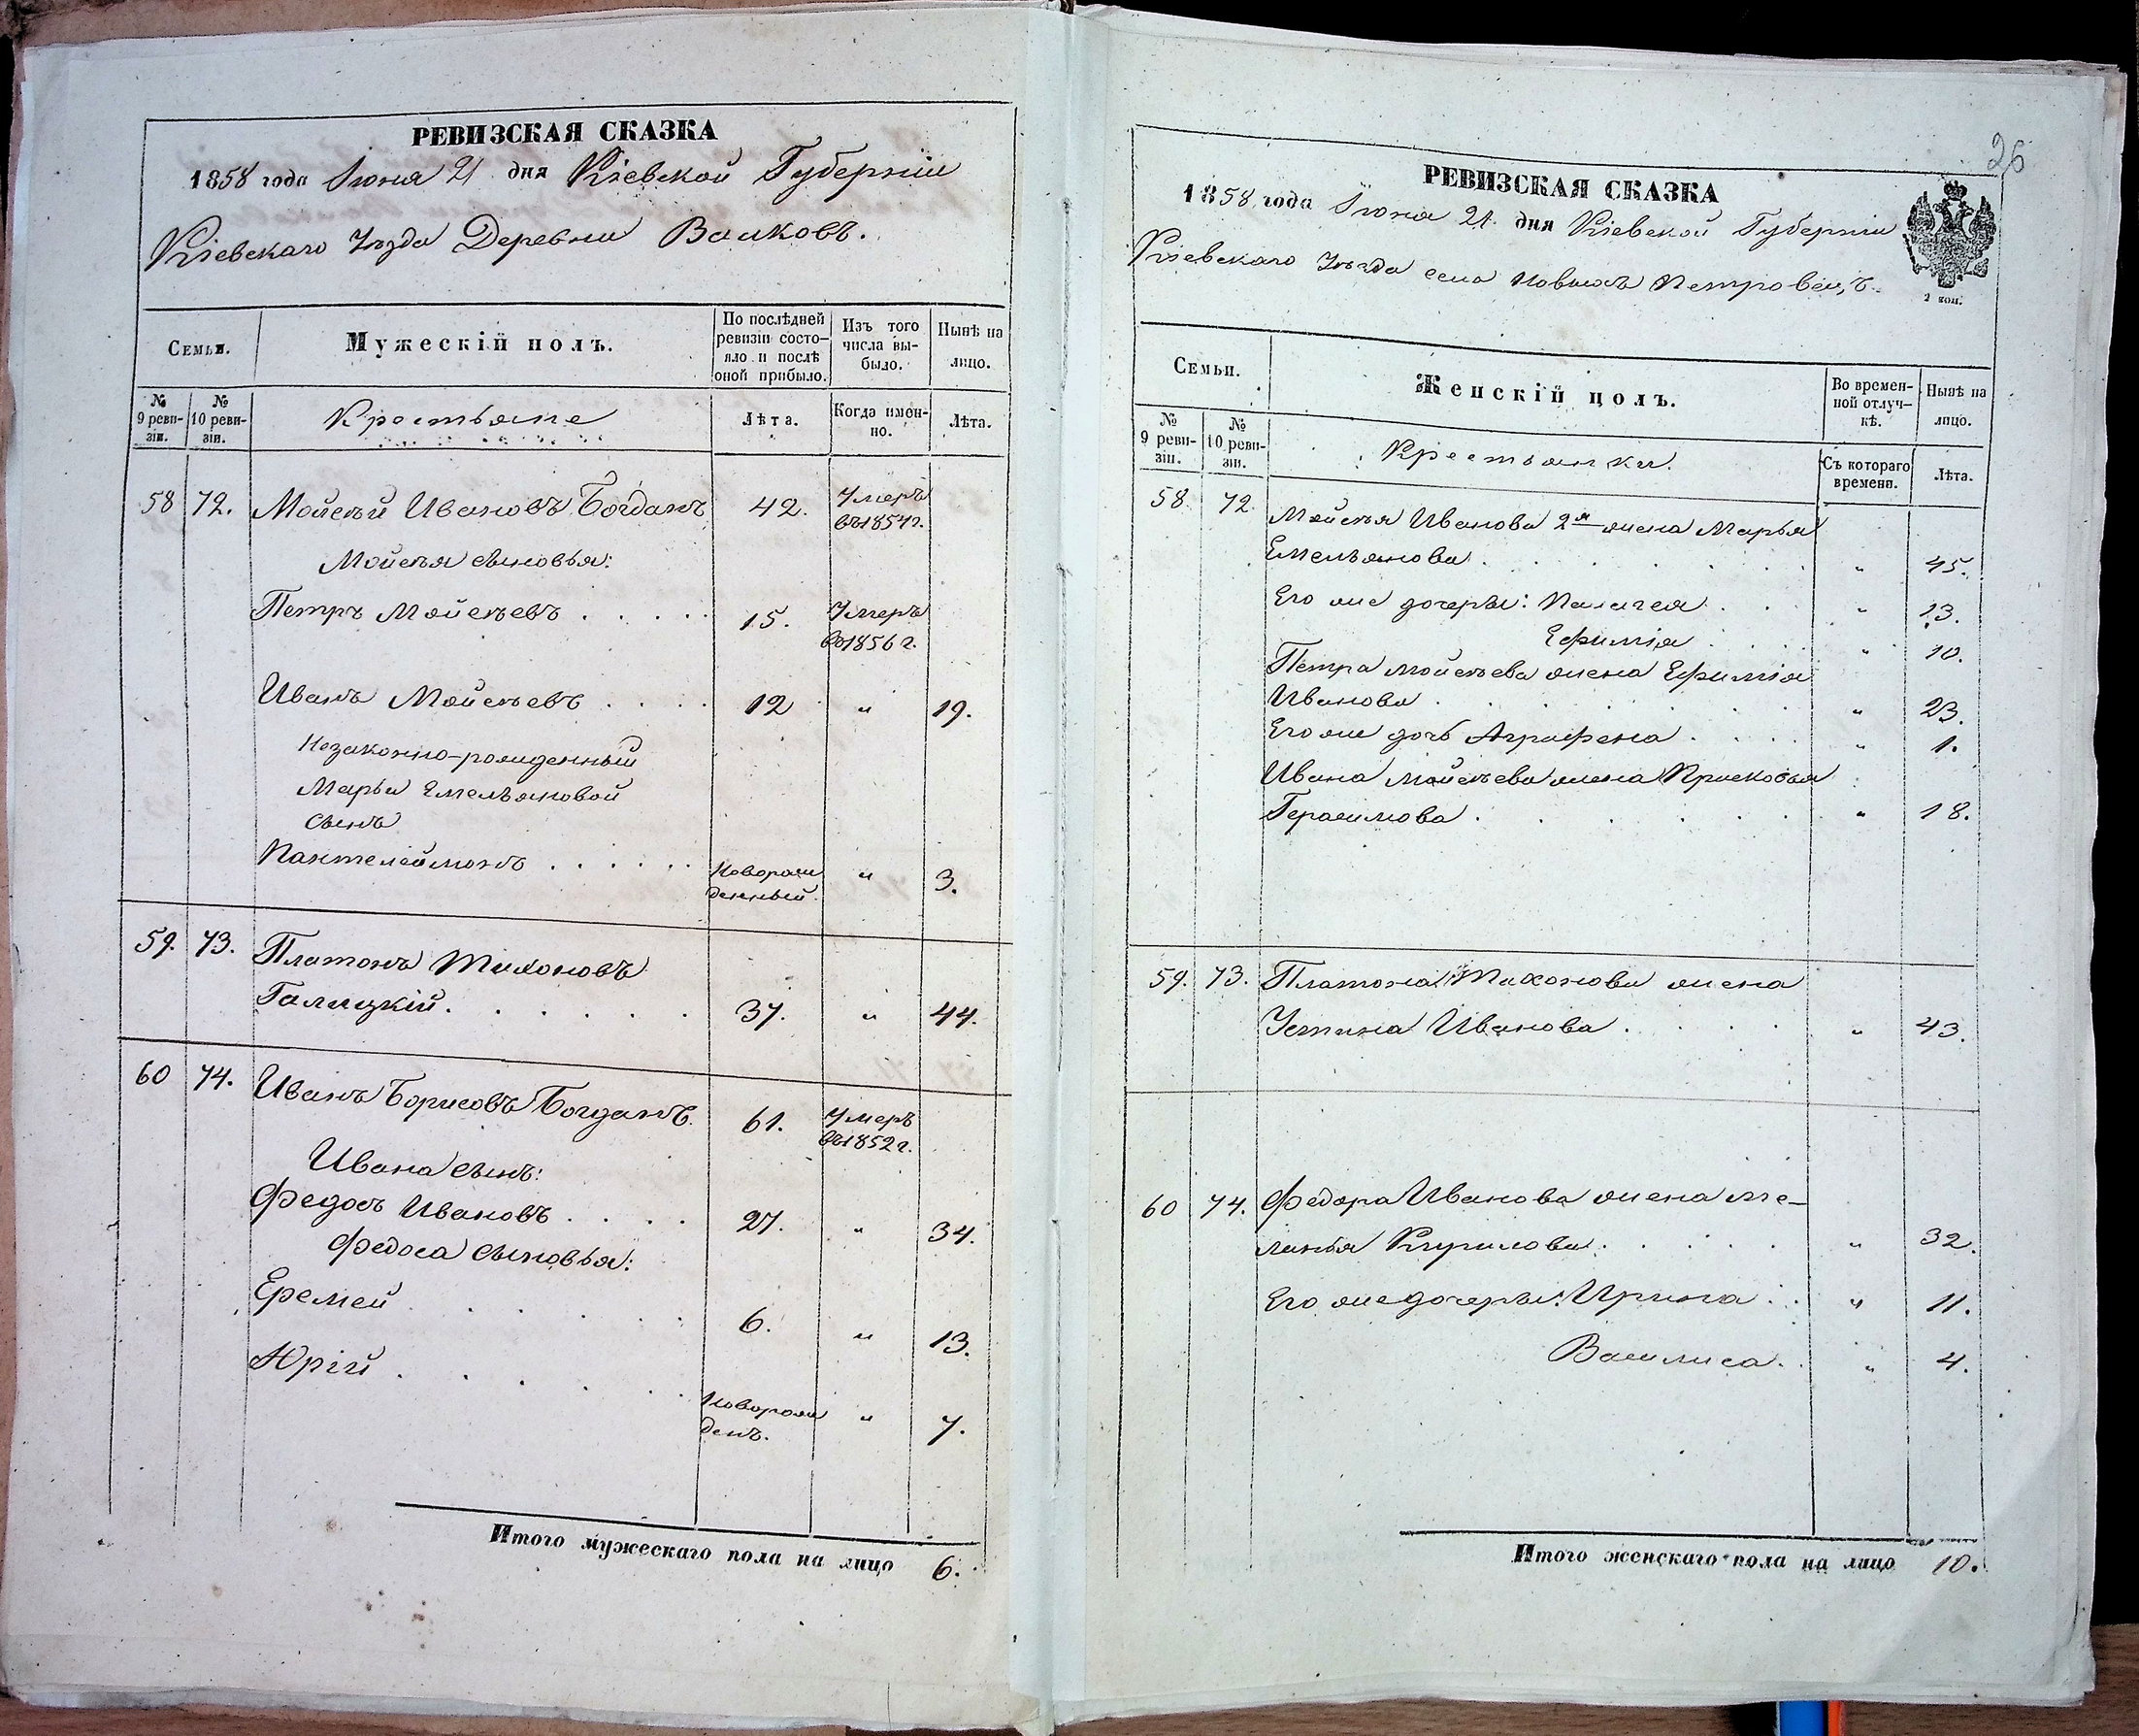 РЕВИЗСКАЯ СКАЗКА
1858 года Іюня 21 дня Кіевской Губерніи
Кіевскаго Уѣзда Деревни Валковъ.
Семьи.
Мужескій полъ.
По послѣдней ревизіи состояло и послѣ оной прибыло.
Изъ того числа выбыло.
Нынѣ на лицо.
№ 9 ревизіи.
№ 10 ревизіи.
Крестьяне
Лѣта.
Когда именно.
Лѣта.
58 72. Мойсѣй Ивановъ Богданъ 42. Умеръ въ 1854 г.
Мойсѣя сыновья:
Петръ Мойсѣевъ 15. Умеръ въ 1856 г.
Иванъ Мойсѣевъ 12 " 19.
Незаконно-рожденный
Марьи Емельяновой
сынъ
Пантелеймонъ Новорожденный " 3.
59. 73. Платонъ Тихоновъ
Галицкій. 37. " 44.
60 74. Иванъ Борисовъ Богданъ 61. Умеръ въ 1852 г.
Ивана сынъ:
Федосъ Ивановъ 27. " 34.
Федоса сыновья:
Еремей 6. " 13.
Юрій Новорожденъ. " 7.
Итого мужескаго пола на лицо 6.
26
РЕВИЗСКАЯ СКАЗКА
1858 года Іюня 21. дня Кіевской Губерніи
Кіевскаго Уѣзда села Новыхъ Петровецъ.
2 коп.
Семьи.
Женскій полъ.
Во временной отлучкѣ.
Нынѣ на лицо.
№ 9 ревизіи.
№ 10 ревизіи.
Крестьянки.
Съ котораго времени.
Лѣта.
58 72 Мойсѣя Иванова 2я жена Марья
Емельянова " 45.
Его же дочери: Палагея " 13.
Ефимія " 10.
Петра Мойсѣева жена Ефимія
Иванова " 23.
Его же дочь Аграфена " 1.
Ивана Мойсѣева жена Прасковья
Герасимова " 18.
59. 73. Платона Тихонова жена
Устина Иванова " 43.
60 74. Федора Иванова жена Ме-
ланья Кирилова " 32.
Его же дочери: Ирина " 11.
Василиса " 4.
Итого женскаго пола на лицо 10.